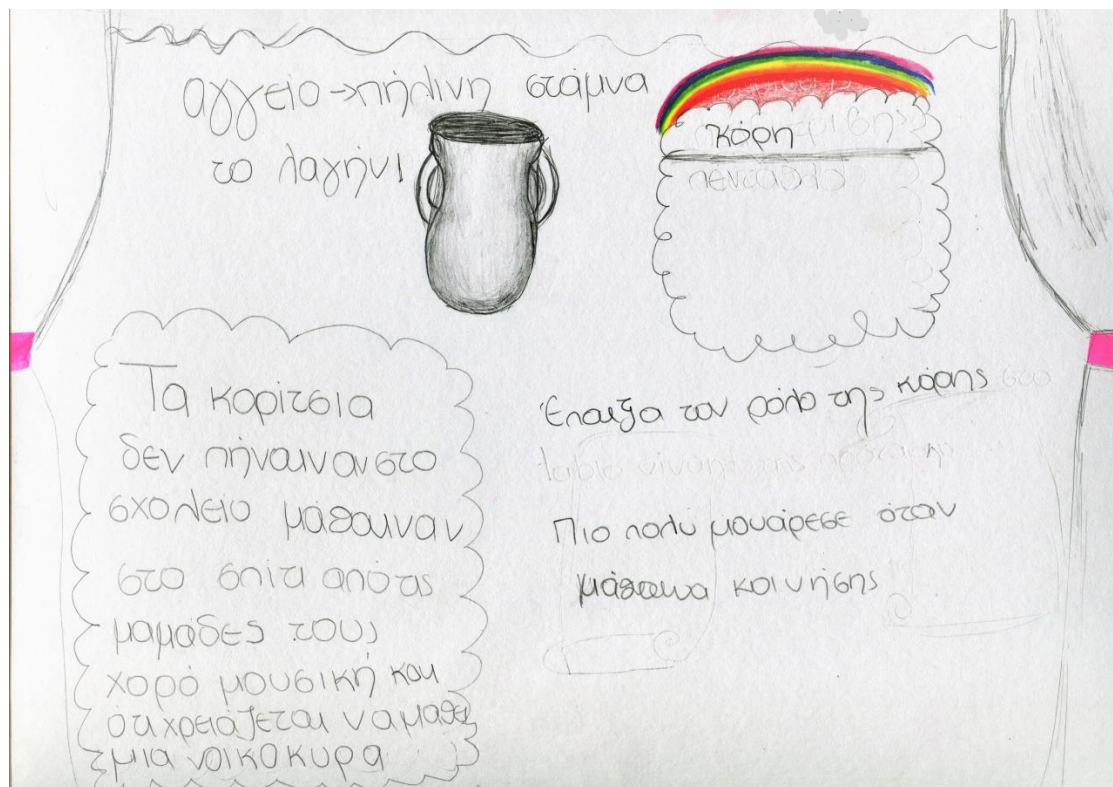 αγγειο → πήλινη στάμνα
το λαγήνι
κόρη
πενταθλο
Τα κορίτσια
δεν πήναιναν στο
σχολειο μάθαιναν
στο σπίτι από τις
μαμάδες τους
χορό μουσική και
ότι χρειάζεται να μαθει
μια νοικοκυρα
Έπαιξα τον ρόλο της κόρης στο
Πιο πολυ μου άρεσε όταν
μάθαινα κοινήσης